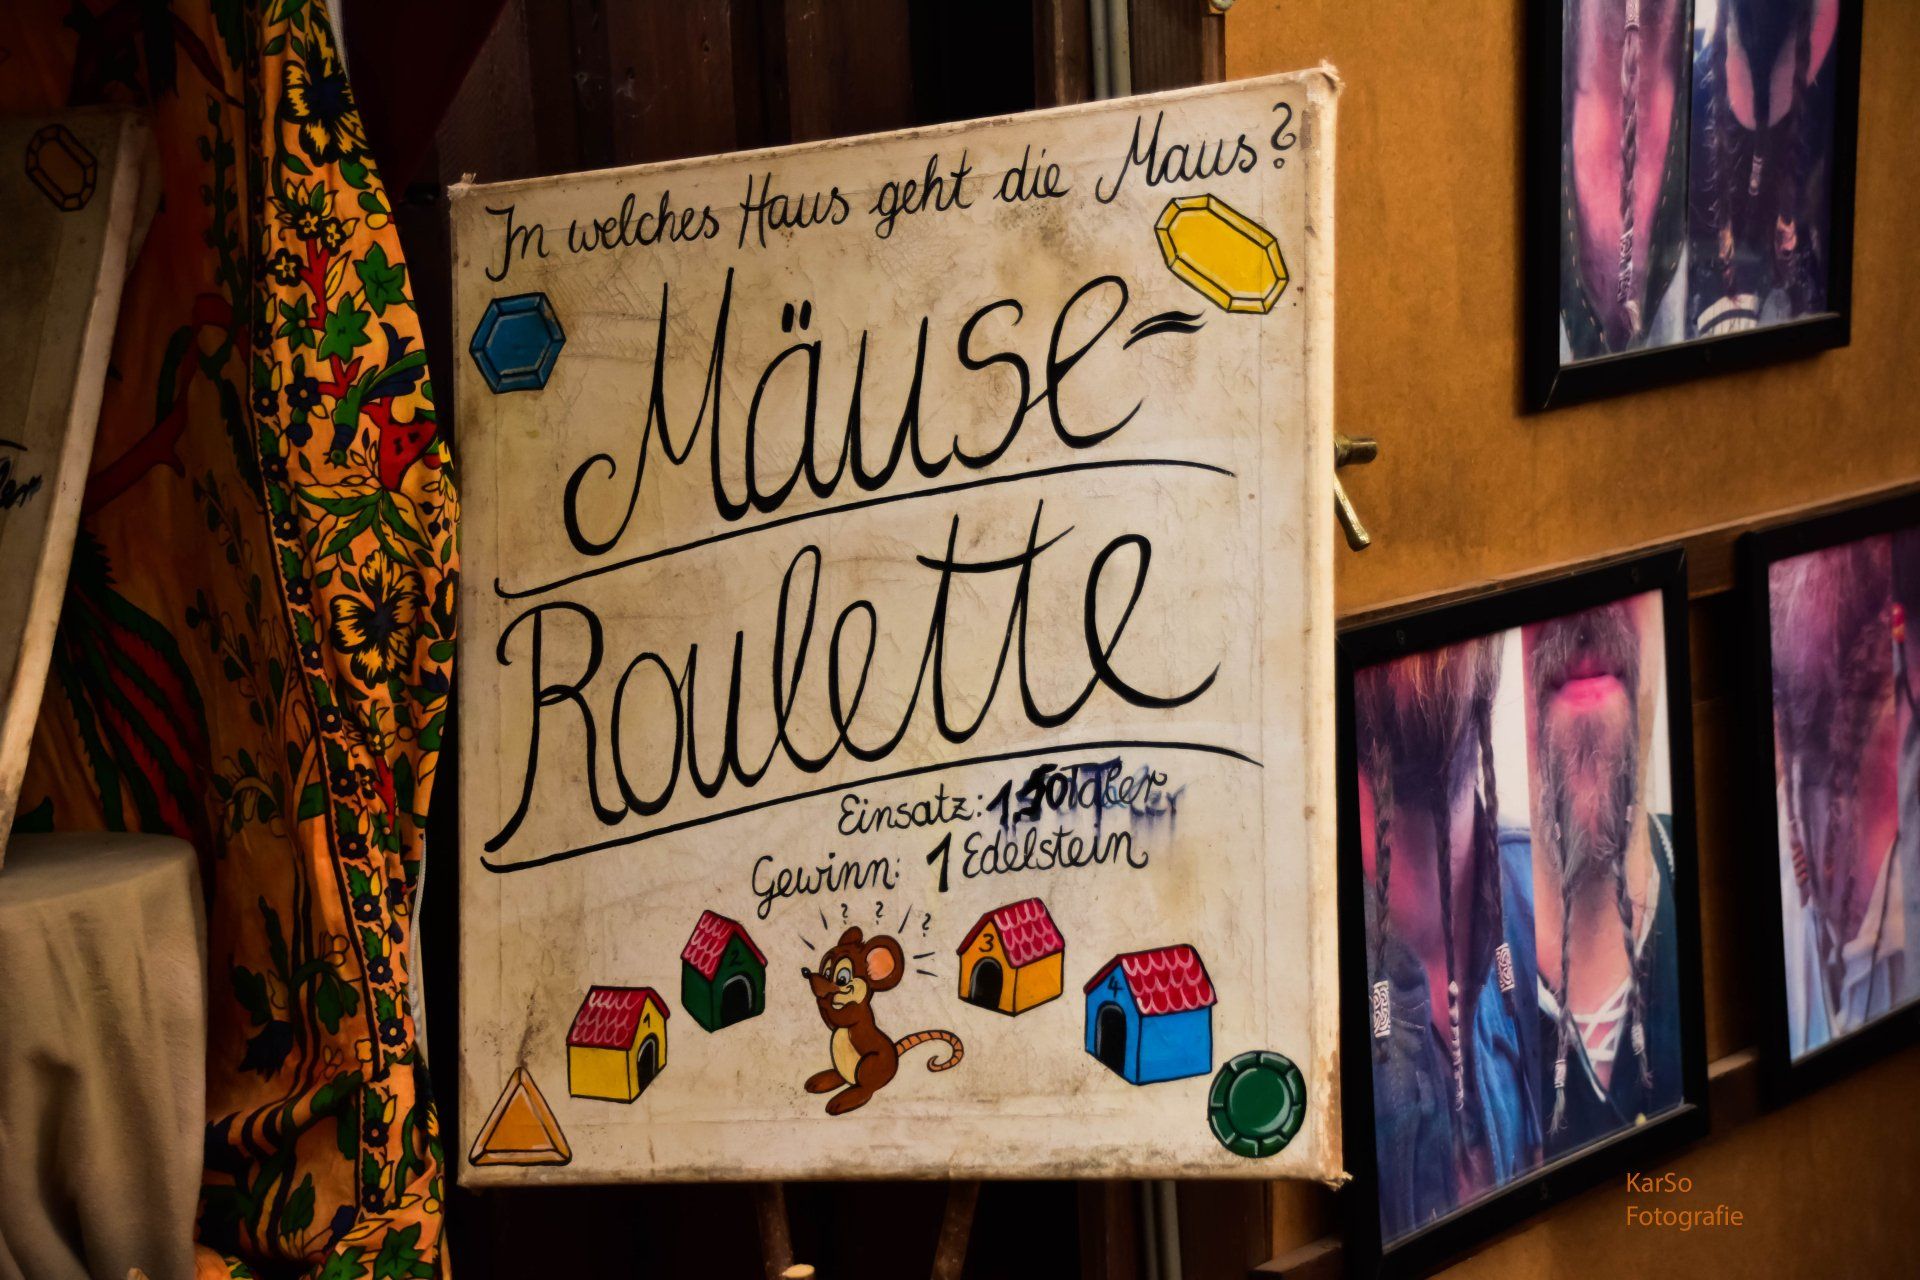 In welches Haus geht die Maus?
Mäuse-
Roulette
Einsatz: 1,50 Taler
Gewinn: 1 Edelstein
? ? ?
1
2
3
4
KarSo
Fotografie